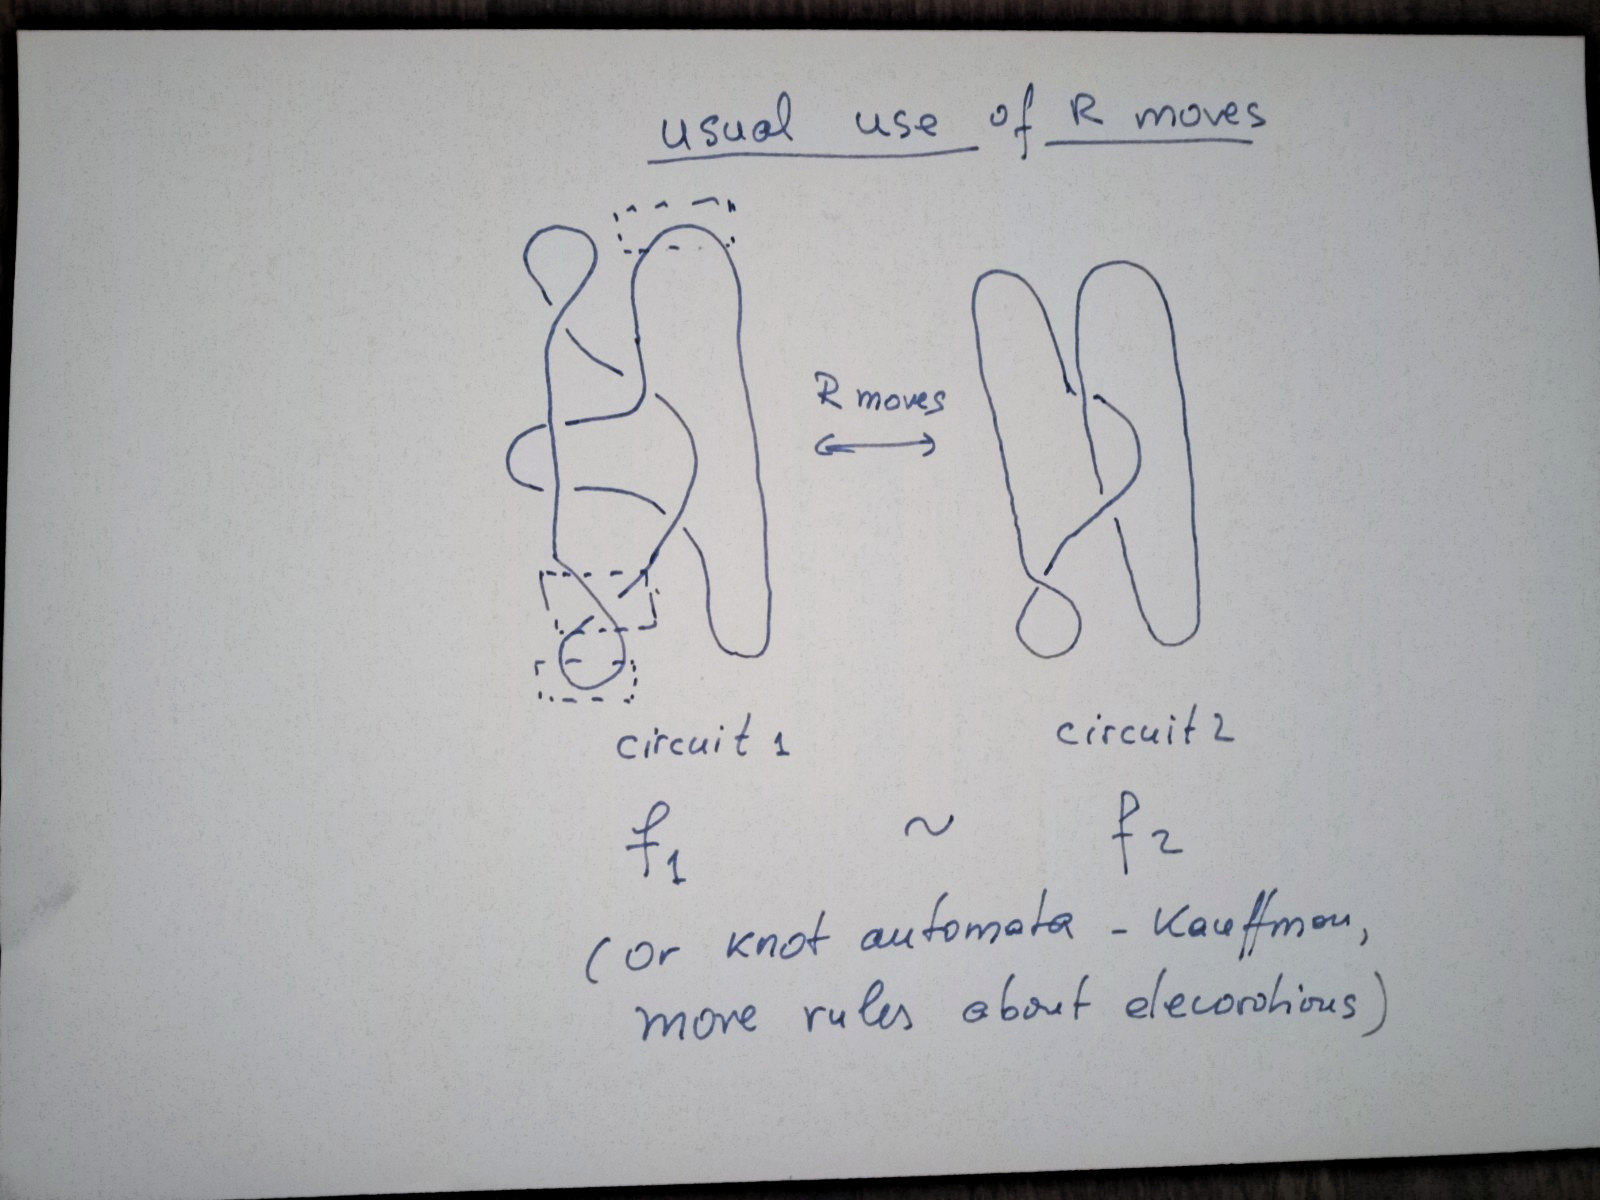 usual use of R moves
R moves
circuit 1
circuit 2
f1 ~ f2
(or knot automata - Kauffman,
more rules about decorations)